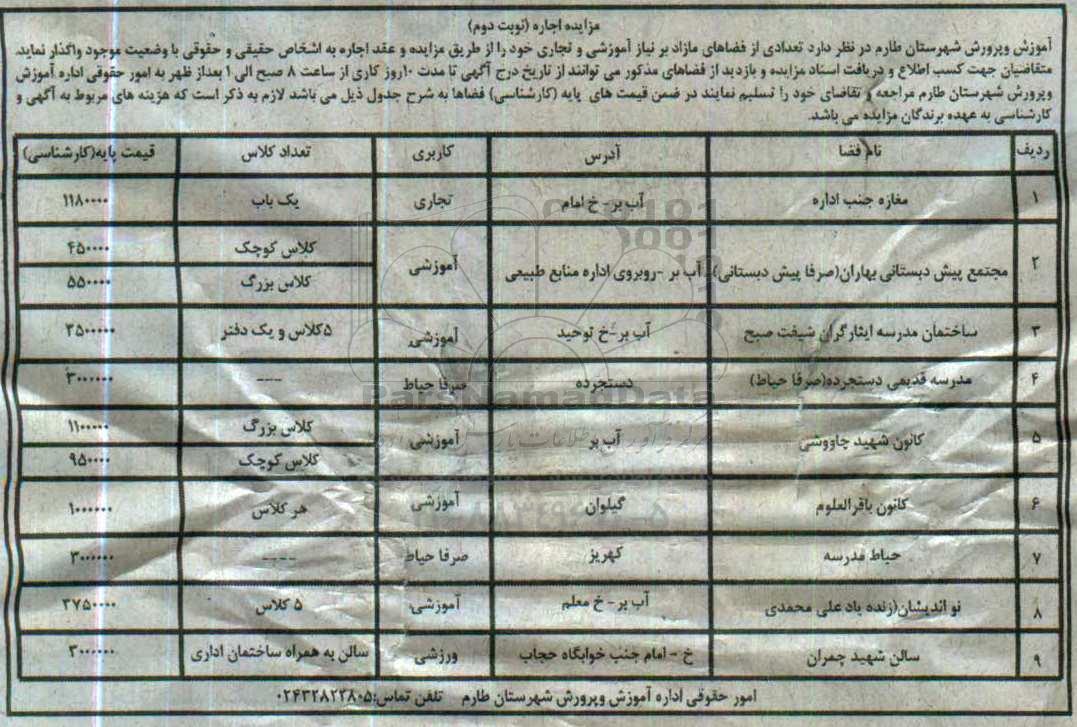 مزایده اجاره (نوبت دوم)
آموزش وپرورش شهرستان طارم در نظر دارد تعدادی از فضاهای مازاد بر نیاز آموزشی و تجاری خود را از طریق مزایده و عقد اجاره به اشخاص حقیقی و حقوقی با وضعیت موجود واگذار نماید.
متقاضیان جهت کسب اطلاع و دریافت اسناد مزایده و بازدید از فضاهای مذکور می توانند از تاریخ درج آگهی تا مدت ۱۰روز کاری از ساعت ۸ صبح الی ۱ بعداز ظهر به امور حقوقی اداره آموزش
وپرورش شهرستان طارم مراجعه و تقاضای خود را تسلیم نمایند در ضمن قیمت های پایه (کارشناسی) فضاها به شرح جدول ذیل می باشد لازم به ذکر است که هزینه های مربوط به آگهی و
کارشناسی به عهده برندگان مزایده می باشد.
ردیف نام فضا آدرس کاربری تعداد کلاس قیمت پایه(کارشناسی)
۱ مغازه جنب اداره آب بر- خ امام تجاری یک باب ۱۱۸۰۰۰۰
۲ مجتمع پیش دبستانی بهاران(صرفا پیش دبستانی) آب بر -روبروی اداره منابع طبیعی آموزشی کلاس کوچک ۴۵۰۰۰۰
کلاس بزرگ ۵۵۰۰۰۰
۳ ساختمان مدرسه ایثارگران شیفت صبح آب بر-خ توحید آموزشی ۵کلاس و یک دفتر ۲۵۰۰۰۰۰
۴ مدرسه قدیمی دستجرده(صرفا حیاط) دستجرده صرفا حیاط --- ۳۰۰۰۰۰۰
۵ کانون شهید چاووشی آب بر آموزشی کلاس بزرگ ۱۱۰۰۰۰۰
کلاس کوچک ۹۵۰۰۰۰
۶ کانون باقرالعلوم گیلوان آموزشی هر کلاس ۱۰۰۰۰۰۰
۷ حیاط مدرسه کهریز صرفا حیاط ---- ۳۰۰۰۰۰۰
۸ نو اندیشان(زنده یاد علی محمدی آب بر- خ معلم آموزشی ۵ کلاس ۳۷۵۰۰۰۰
۹ سالن شهید چمران خ - امام جنب خوابگاه حجاب ورزشی سالن به همراه ساختمان اداری ۳۰۰۰۰۰۰
امور حقوقی اداره آموزش وپرورش شهرستان طارم تلفن تماس:۰۲۴۳۲۸۲۲۸۰۵
ParsNamadData